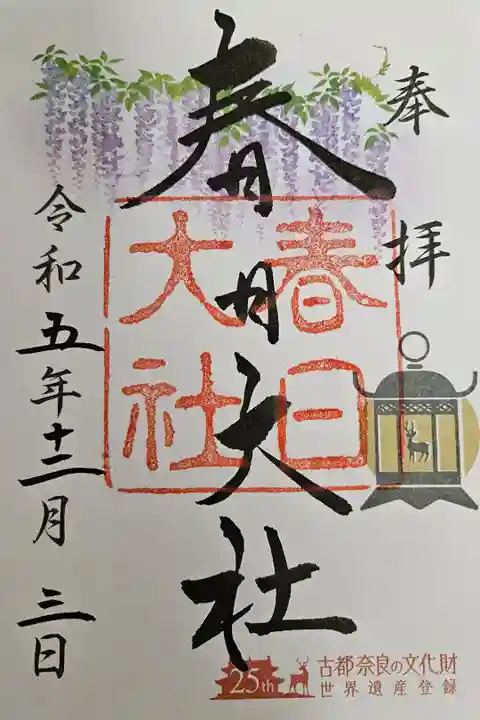 奉拝
春日大社
春日大社
令和五年十二月三日
25th
古都奈良の文化財
世界遺産登録